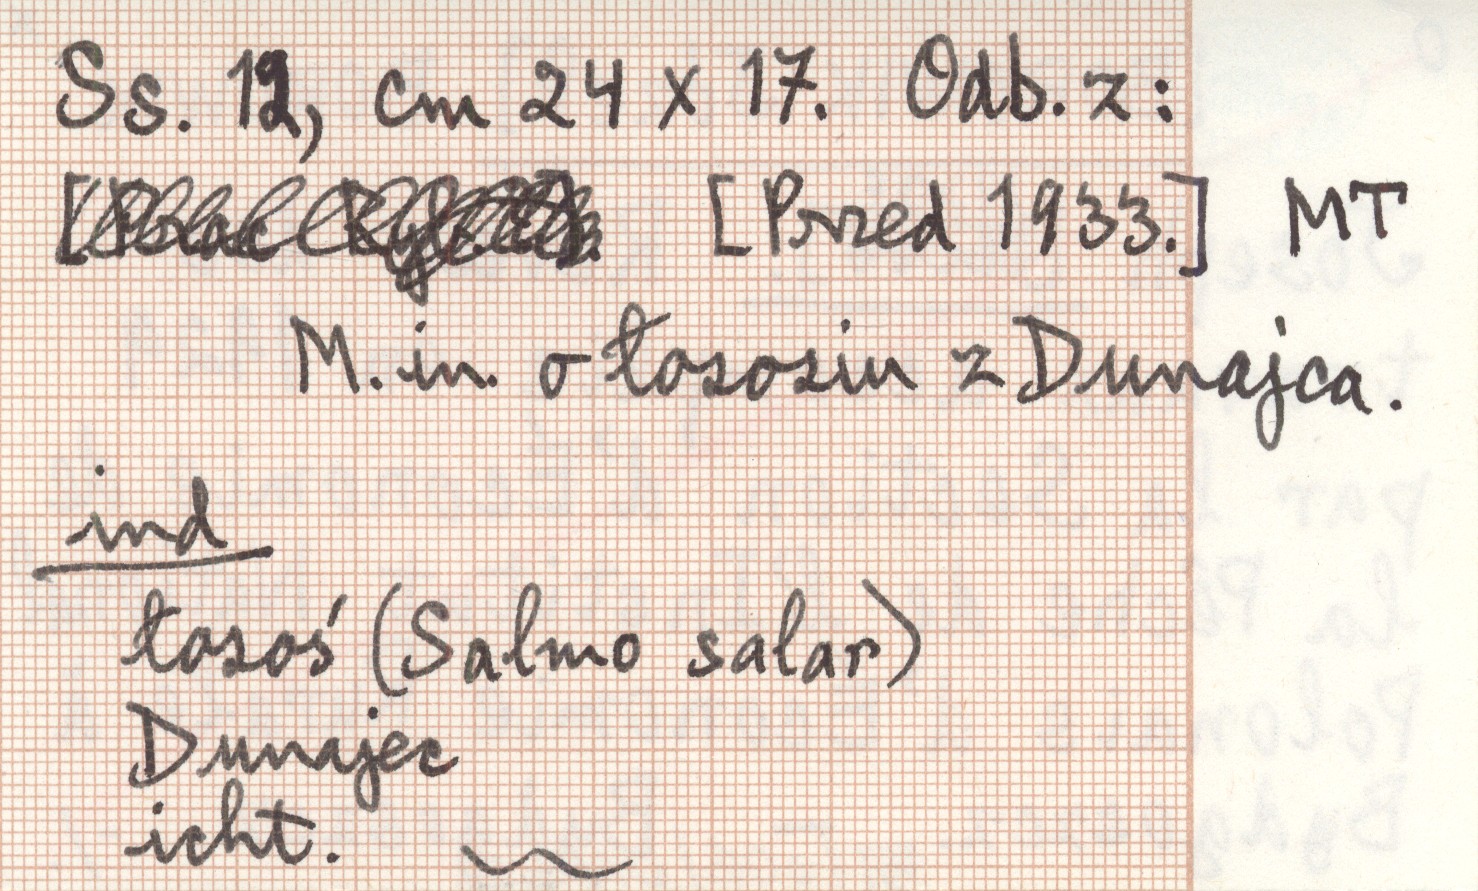 Ss. 12, cm 24 x 17. Odb. z:
[Przed 1933.] MT
M. in. o łososiu z Dunajca.
ind
łosoś (Salmo salar)
Dunajec
icht.